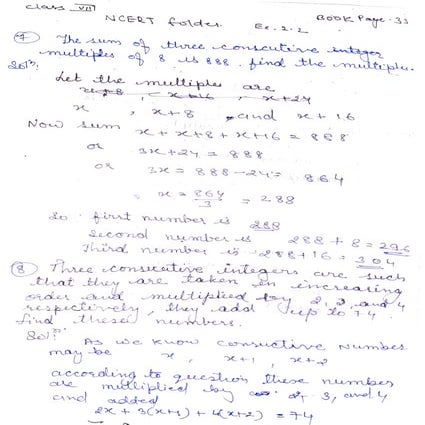 class VII
NCERT folder Ex. 2.2 BOOK Page. 33
7 The sum of three consecutive integer
multiples of 8 is 888. find the multiples.
Solⁿ. Let the multiples are
x+8, x+16, x+24
x, x+8 and x+16
Now sum x + x+8 + x+16 = 888
or 3x+24 = 888
or 3x = 888-24= 864
x = 864/3 = 288
So first number is 288
Second number is 288 + 8 = 296
Third number is 288+16 = 304
8 Three consecutive integers are such
that they are taken in increasing
order and multiplied by 2, 3, and 4
respectively, they add up to 74
find these numbers.
Solⁿ. As we know consuctive number
may be x, x+1, x+2
according to question these number
are multiplied by 2, 3, and 4
and added
2x + 3(x+1) + 4(x+2) = 74